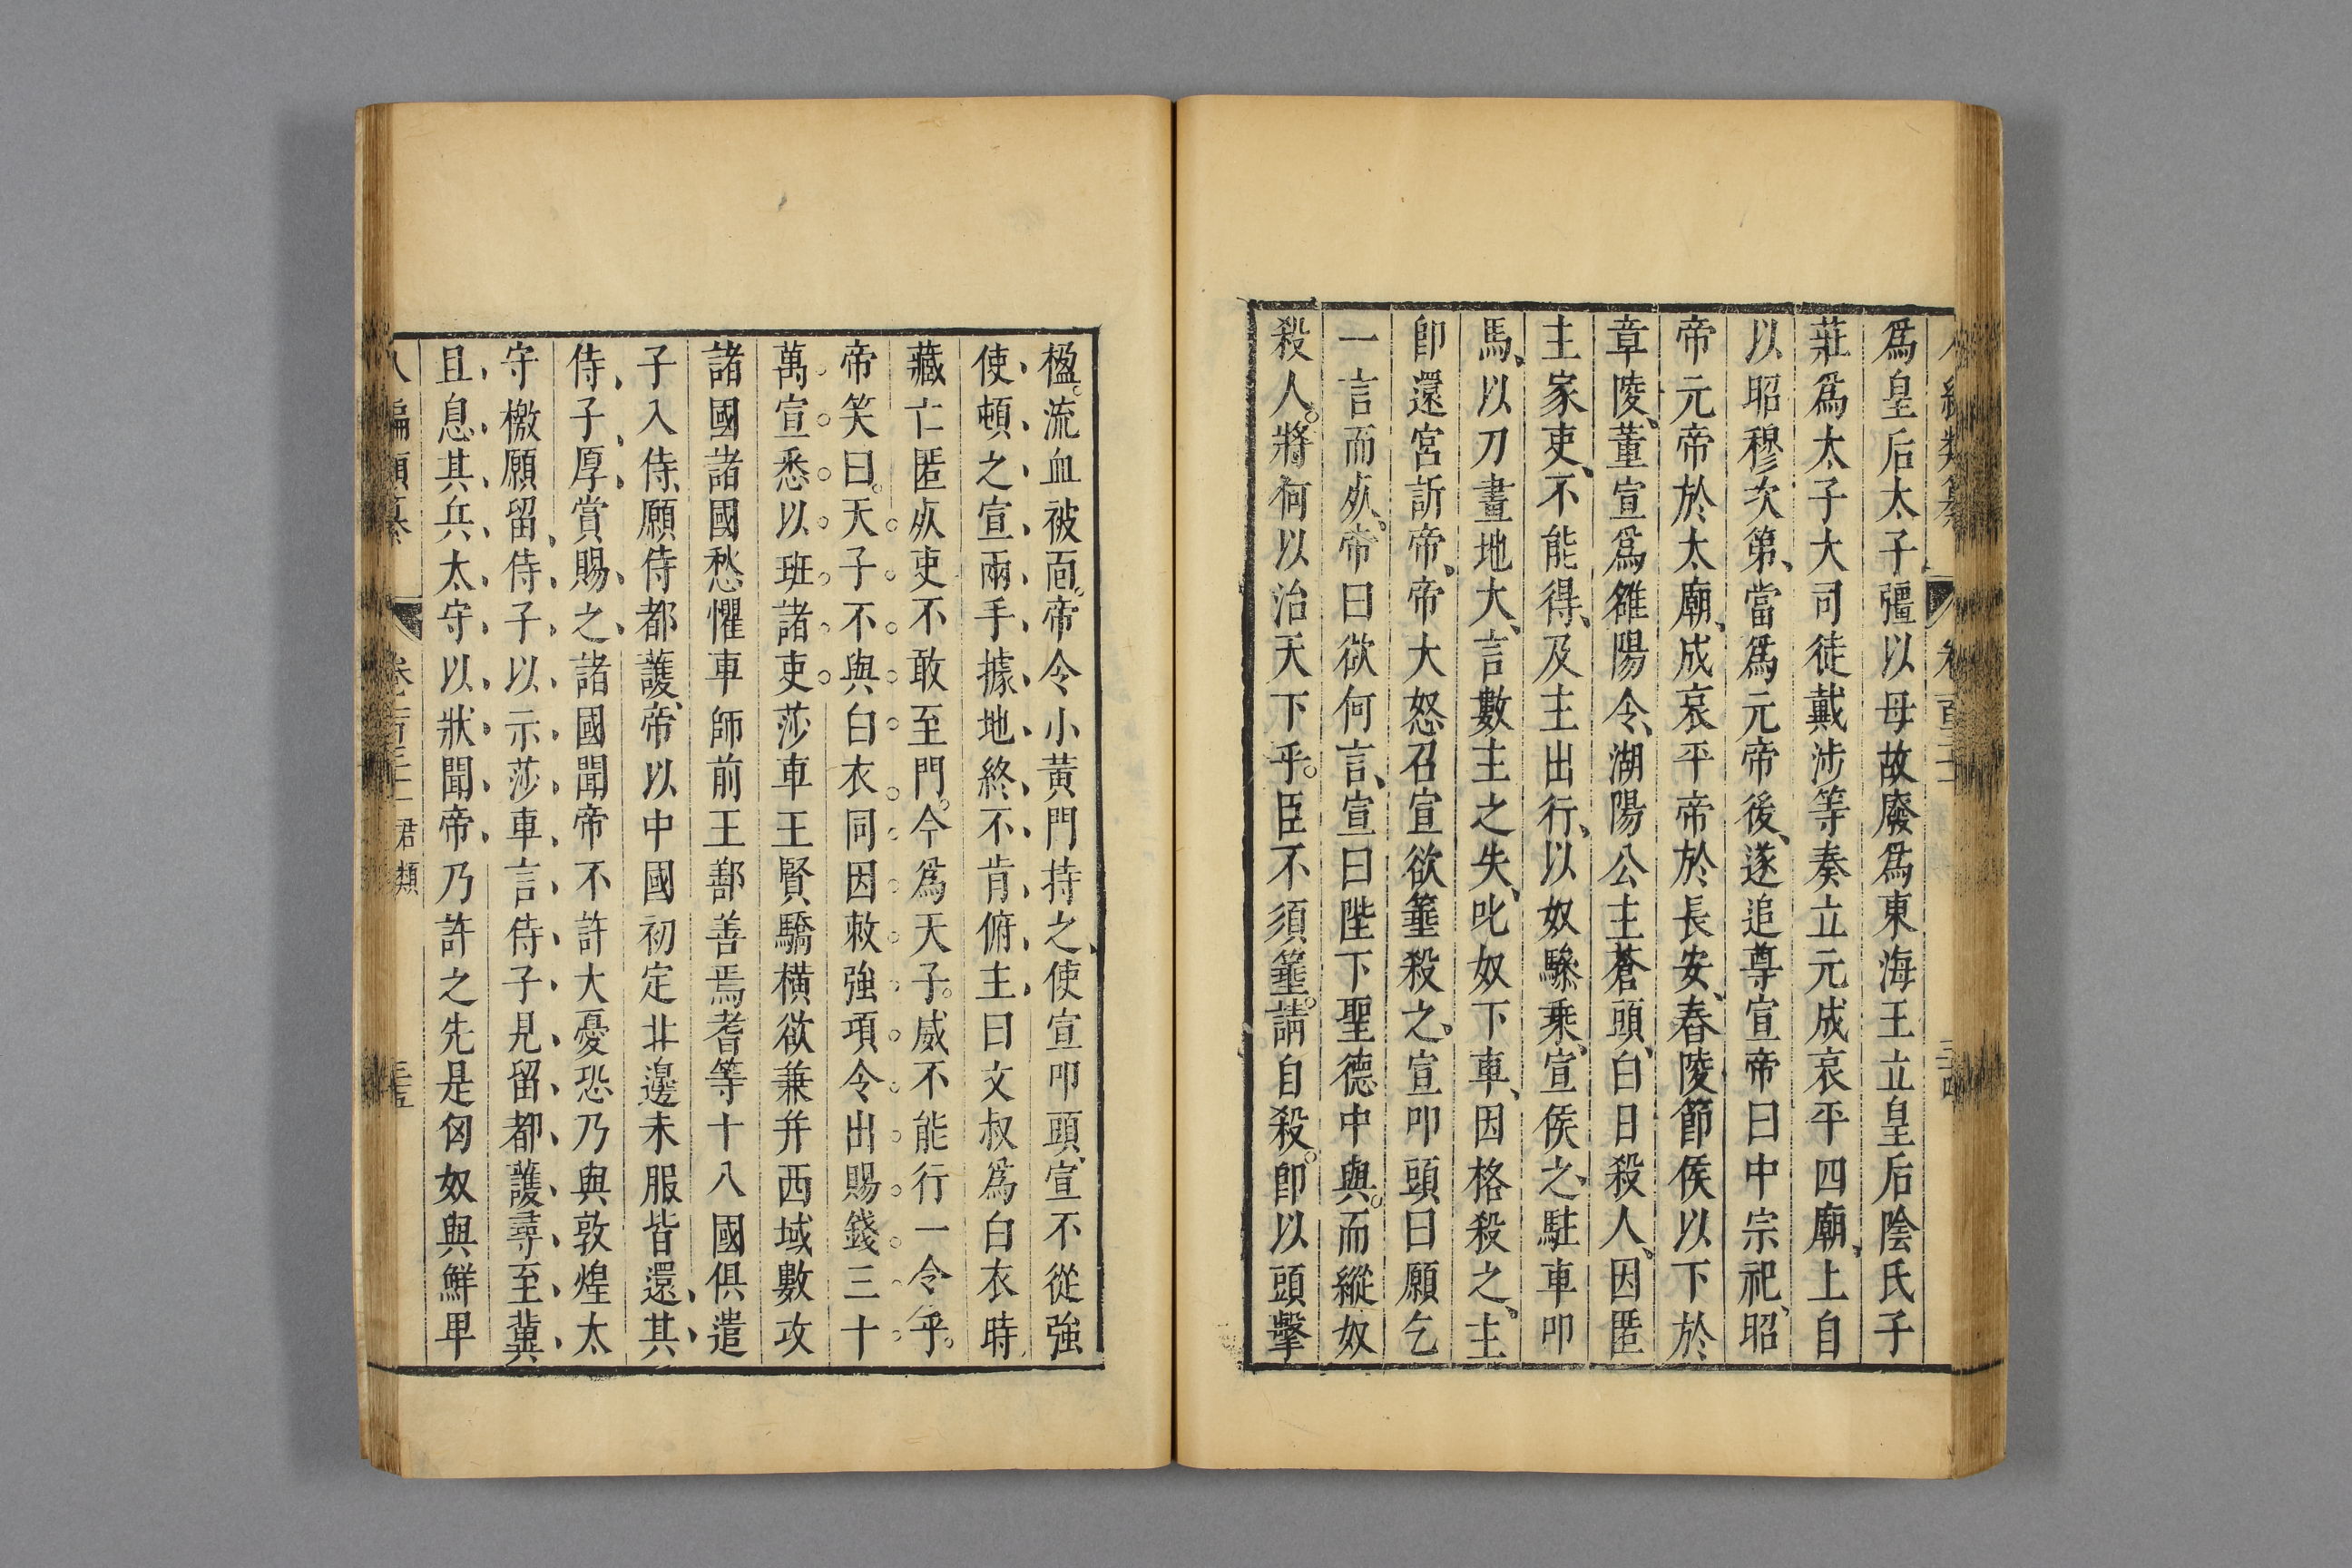 爲皇后太子彊以母故廢爲東海王立皇后陰氏子
莊爲太子大司徒戴涉等奏立元成哀平四廟、上自
以昭穆次第、當爲元帝後、遂追尊宣帝曰中宗祀、昭
帝元帝於太廟、成哀平帝於長安、舂陵節侯以下於
章陵、董宣爲雒陽令、湖陽公主蒼頭、白日殺人、因匿
主家吏、不能得、及主出行、以奴驂乗、宣侯之、駐車叩
馬、以刀畫地大、言數主之失、叱奴下車、因格殺之、主
卽還宮訢帝、帝大怒召宣欲箠殺之、宣叩頭曰願乞
一言而死、帝曰欲何言、宣曰陛下聖德中興。而縱奴
殺人。將何以治天下乎。臣不須箠。請自殺。卽以頭擊
楹。流血被面。帝令小黃門持之、使宣叩頭、宣不從強
使頓之宣兩手據地終不肯俯主曰文叔爲白衣時
藏亡匿死吏不敢至門。今爲天子。威不能行一令乎。
帝笑曰。天子不與白衣同因敕強項令出賜錢三十
萬宣悉以班諸吏莎車王賢驕橫欲兼并西域數攻
諸國諸國愁懼車師前王鄯善焉耆等十八國俱遣
子入侍、願侍都護、帝以中國初定北邊未服皆還其
侍子厚賞賜之諸國聞帝不許大憂恐乃與敦煌太
守檄願留侍子以示莎車言侍子見留都護尋至冀
且息其兵太守以狀聞帝乃許之先是匈奴與鮮卑
君類